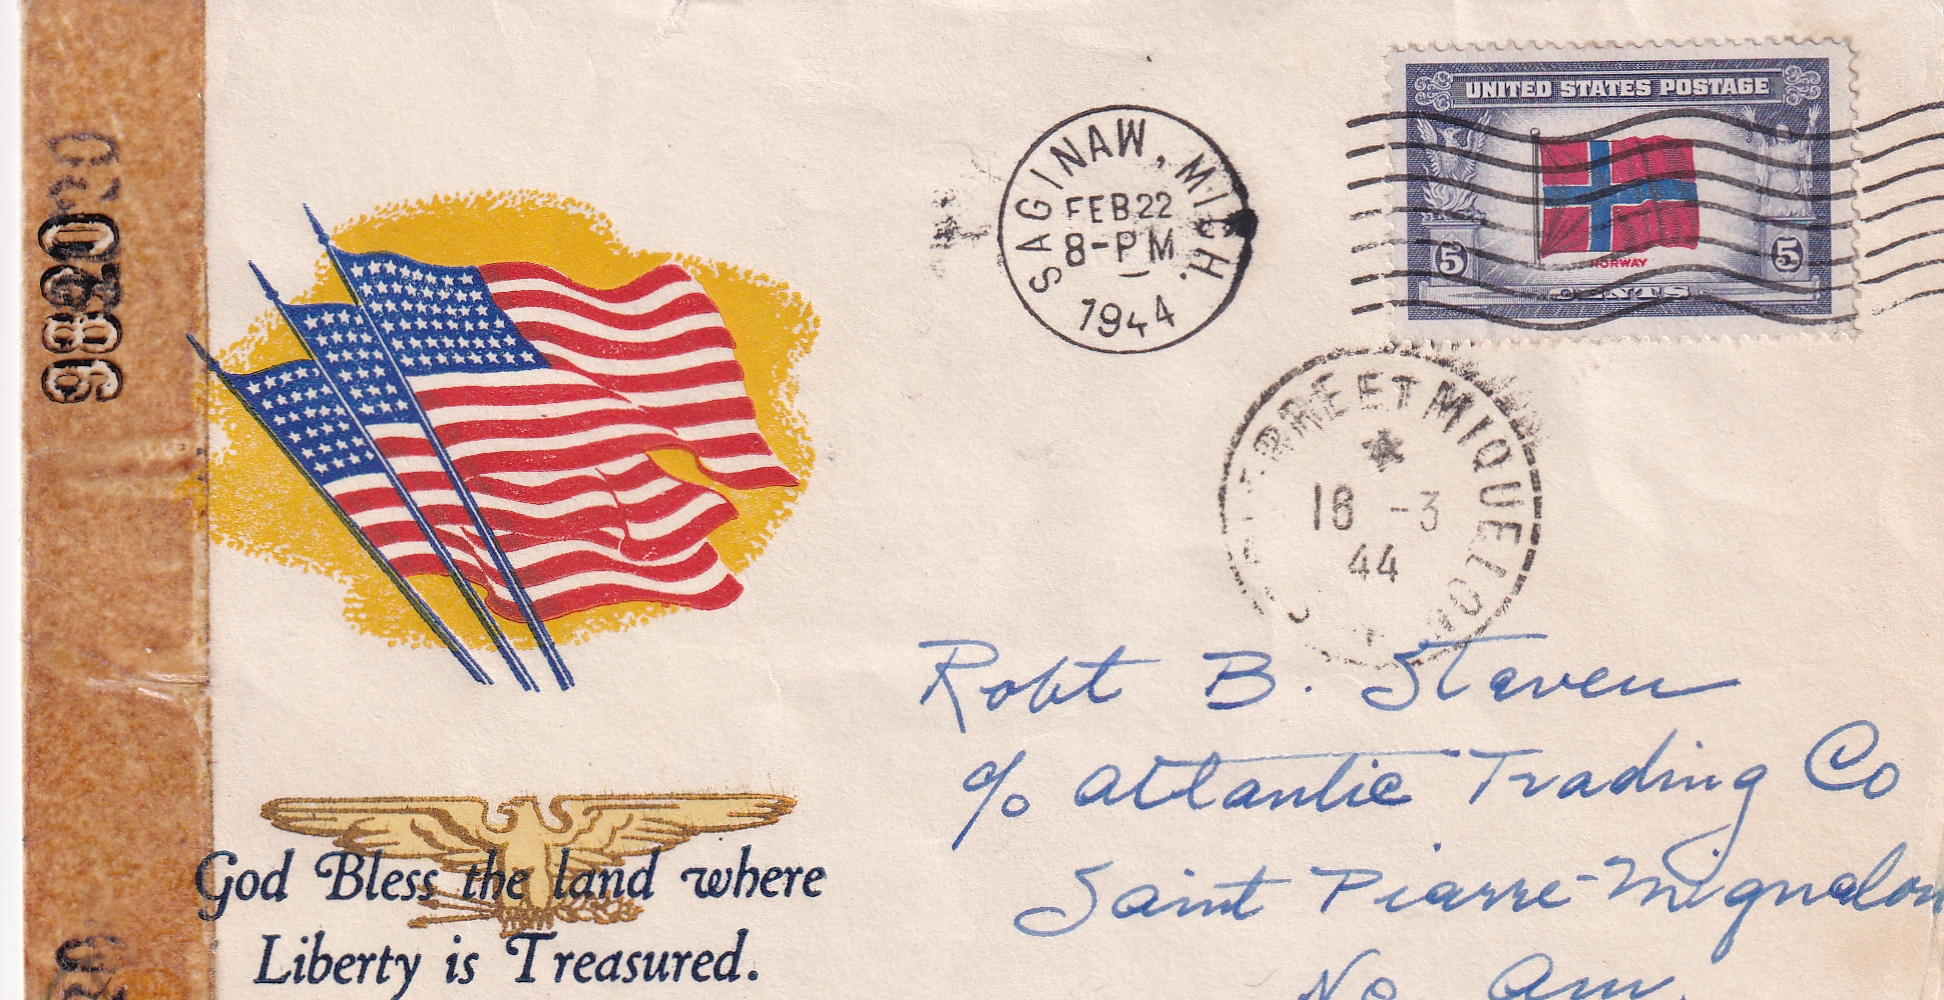 9820
UNITED STATES POSTAGE
NORWAY
5 5
CENTS
SAGINAW, MICH.
FEB 22
8-PM
1944
RRE ET MIQUELON
18 -3
44
Robt B. Steven
c/o Atlantic Trading Co
Saint Piarre-Miquelon
No. Am.
God Bless the land where
Liberty is Treasured.